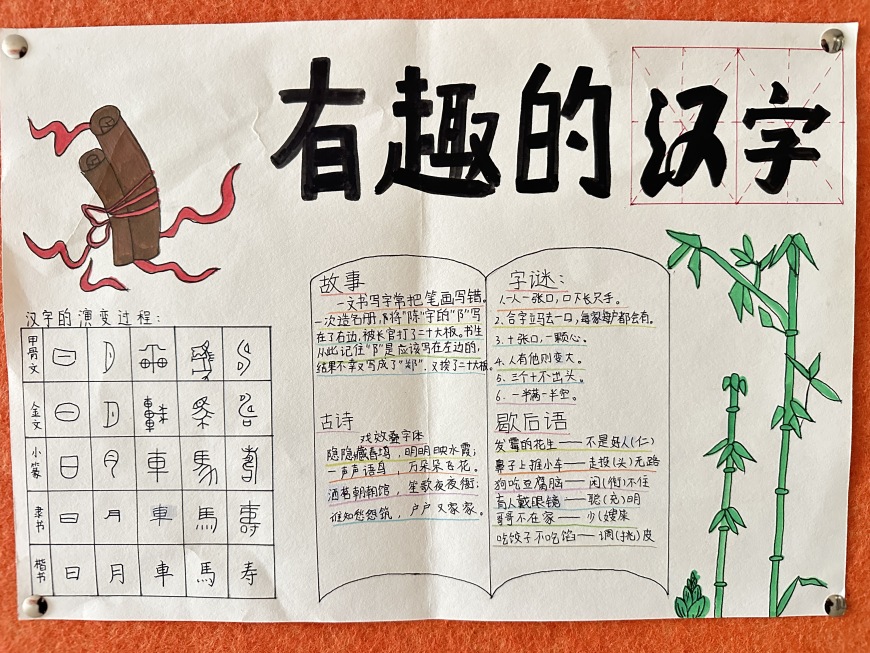 有趣的汉字
汉字的演变过程：
甲骨文
金文
小篆
車
隶书
日 月 車 馬 壽
楷书
日 月 車 馬 寿
故事
一文书写字常把笔画写错。
一次造名册，将"陈"字的"阝"写
在了右边，被长官打了二十大板。书生
从此记住"阝"是应该写在左边的，
结果不幸又写成了"郑"．又挨了二十大板。
古诗
戏效叠字体
隐隐藏春坞，明明映水霞；
一声声语鸟，万朵朵飞花。
洒若朝朝馆，笙歌夜夜衙；
谁知愁怨筑，户户又家家。
字谜：
1.一人一张口，口下长只手。
2.合字立马去一口，每家每户都会有。
3.十张口，一颗心。
4.人有他则变大。
5.三个十不出头。
6.一半满一半空。
歇后语
发霉的花生——不是好人(仁)
鼻子上推小车——走投(头)无路
狗吃豆腐脑——闲(衔)不住
盲人戴眼镜——聪(充)明
哥哥不在家——少(嫂)来
吃饺子不吃馅——调(挑)皮